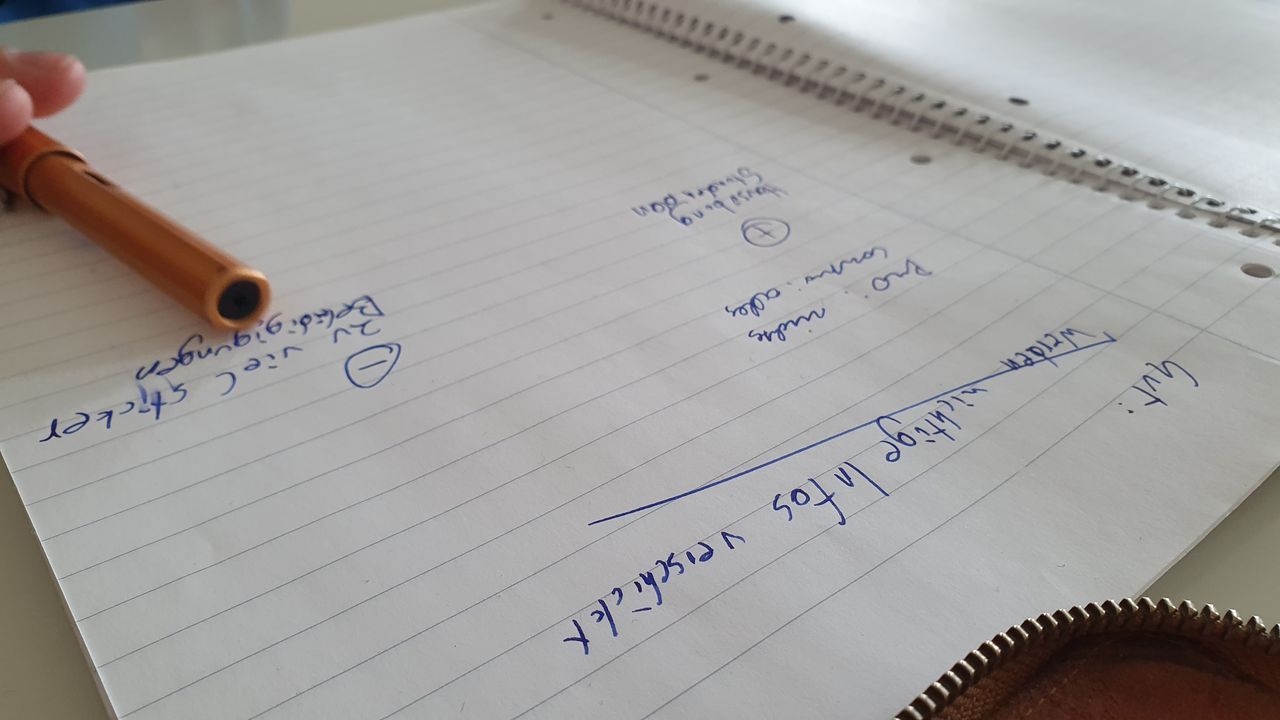 Gut:
Werden wichtige Infos verschickt
Pro: nichts
contra: alles
⊕
Hausübung
Stundenplan
⊖
zu viel Sticker
Beleidigigungen